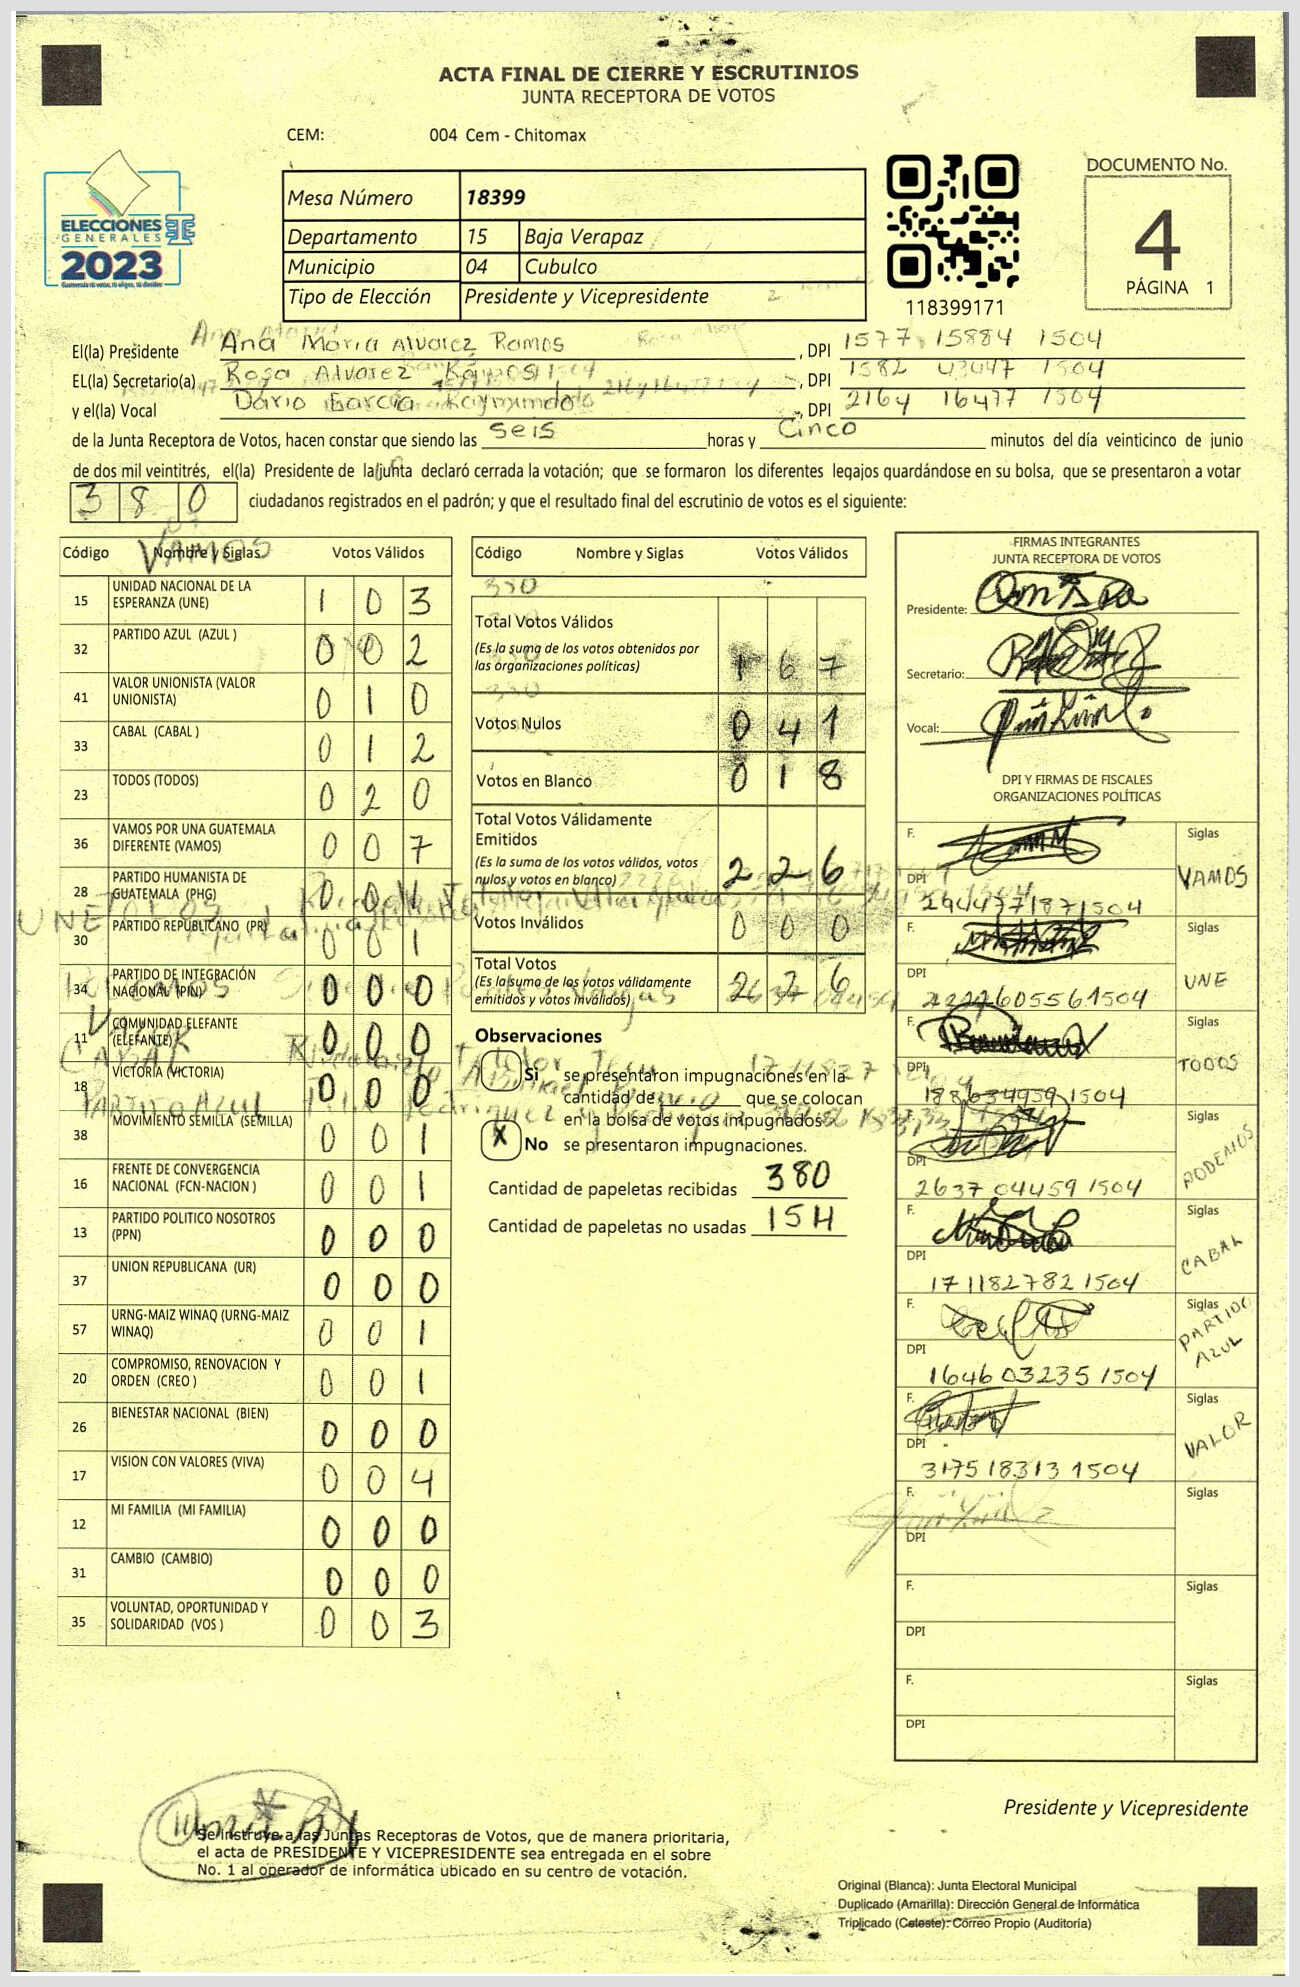 ACTA FINAL DE CIERRE Y ESCRUTINIOS
JUNTA RECEPTORA DE VOTOS
CEM: 004 Cem - Chitomax
ELECCIONES
GENERALES
2023
Mesa Número 18399
Departamento 15 Baja Verapaz
Municipio 04 Cubulco
Tipo de Elección Presidente y Vicepresidente
118399171
DOCUMENTO No.
4
PÁGINA 1
El(la) Presidente Ana Maria Alvarez Ramos, DPI 1577 15884 1504
EL(la) Secretario(a) Rosa Alvarez Ramos, DPI 1582 43447 1504
y el(la) Vocal Dario Garcia Raymundo, DPI 2164 16477 1504
de la Junta Receptora de Votos, hacen constar que siendo las seis horas y Cinco minutos del día veinticinco de junio
de dos mil veintitrés, el(la) Presidente de la junta declaró cerrada la votación; que se formaron los diferentes legajos quardándose en su bolsa, que se presentaron a votar
380 ciudadanos registrados en el padrón; y que el resultado final del escrutinio de votos es el siguiente:
VAMOS
Código Nombre y Siglas Votos Válidos
15 UNIDAD NACIONAL DE LA ESPERANZA (UNE) 1 0 3
32 PARTIDO AZUL (AZUL ) 0 0 2
41 VALOR UNIONISTA (VALOR UNIONISTA) 0 1 0
33 CABAL (CABAL ) 0 1 2
23 TODOS (TODOS) 0 2 0
36 VAMOS POR UNA GUATEMALA DIFERENTE (VAMOS) 0 0 7
28 PARTIDO HUMANISTA DE GUATEMALA (PHG) 0 0 1
30 PARTIDO REPUBLICANO (PR) 0 0 1
34 PARTIDO DE INTEGRACIÓN NACIONAL (PIN) 0 0 0
11 COMUNIDAD ELEFANTE (ELEFANTE) 0 0 0
18 VICTORIA (VICTORIA) 0 0 0
38 MOVIMIENTO SEMILLA (SEMILLA) 0 0 1
16 FRENTE DE CONVERGENCIA NACIONAL (FCN-NACION ) 0 0 1
13 PARTIDO POLITICO NOSOTROS (PPN) 0 0 0
37 UNION REPUBLICANA (UR) 0 0 0
57 URNG-MAIZ WINAQ (URNG-MAIZ WINAQ) 0 0 1
20 COMPROMISO, RENOVACION Y ORDEN (CREO ) 0 0 1
26 BIENESTAR NACIONAL (BIEN) 0 0 0
17 VISION CON VALORES (VIVA) 0 0 4
12 MI FAMILIA (MI FAMILIA) 0 0 0
31 CAMBIO (CAMBIO) 0 0 0
35 VOLUNTAD, OPORTUNIDAD Y SOLIDARIDAD (VOS ) 0 0 3
Código Nombre y Siglas Votos Válidos
Total Votos Válidos
(Es la suma de los votos obtenidos por
las organizaciones políticas) 1 6 7
Votos Nulos 0 4 1
Votos en Blanco 0 1 8
Total Votos Válidamente
Emitidos
(Es la suma de los votos válidos, votos
nulos y votos en blanco) 2 2 6
Votos Inválidos 0 0 0
Total Votos
(Es la suma de los votos válidamente
emitidos y votos inválidos) 2 2 6
Observaciones
Si se presentaron impugnaciones en la
cantidad de que se colocan
en la bolsa de votos impugnados
X No se presentaron impugnaciones.
Cantidad de papeletas recibidas 380
Cantidad de papeletas no usadas 154
FIRMAS INTEGRANTES
JUNTA RECEPTORA DE VOTOS
Presidente:
Secretario:
Vocal:
DPI Y FIRMAS DE FISCALES
ORGANIZACIONES POLÍTICAS
F. Siglas VAMOS
DPI 2944771871504
F. Siglas UNE
DPI 2227605561504
F. Siglas TODOS
DPI 1886349591504
F. Siglas PODEMOS
DPI 2637 04459 1504
F. Siglas CABAL
DPI 171182782 1504
F. Siglas PARTIDO AZUL
DPI 1646 03235 1504
F. Siglas VALOR
DPI 3175 18313 1504
F. Siglas
DPI
F. Siglas
DPI
F. Siglas
DPI
Presidente y Vicepresidente
Se instruye a las Juntas Receptoras de Votos, que de manera prioritaria,
el acta de PRESIDENTE Y VICEPRESIDENTE sea entregada en el sobre
No. 1 al operador de informática ubicado en su centro de votación.
Original (Blanca): Junta Electoral Municipal
Duplicado (Amarilla): Dirección General de Informática
Triplicado (Celeste): Correo Propio (Auditoría)